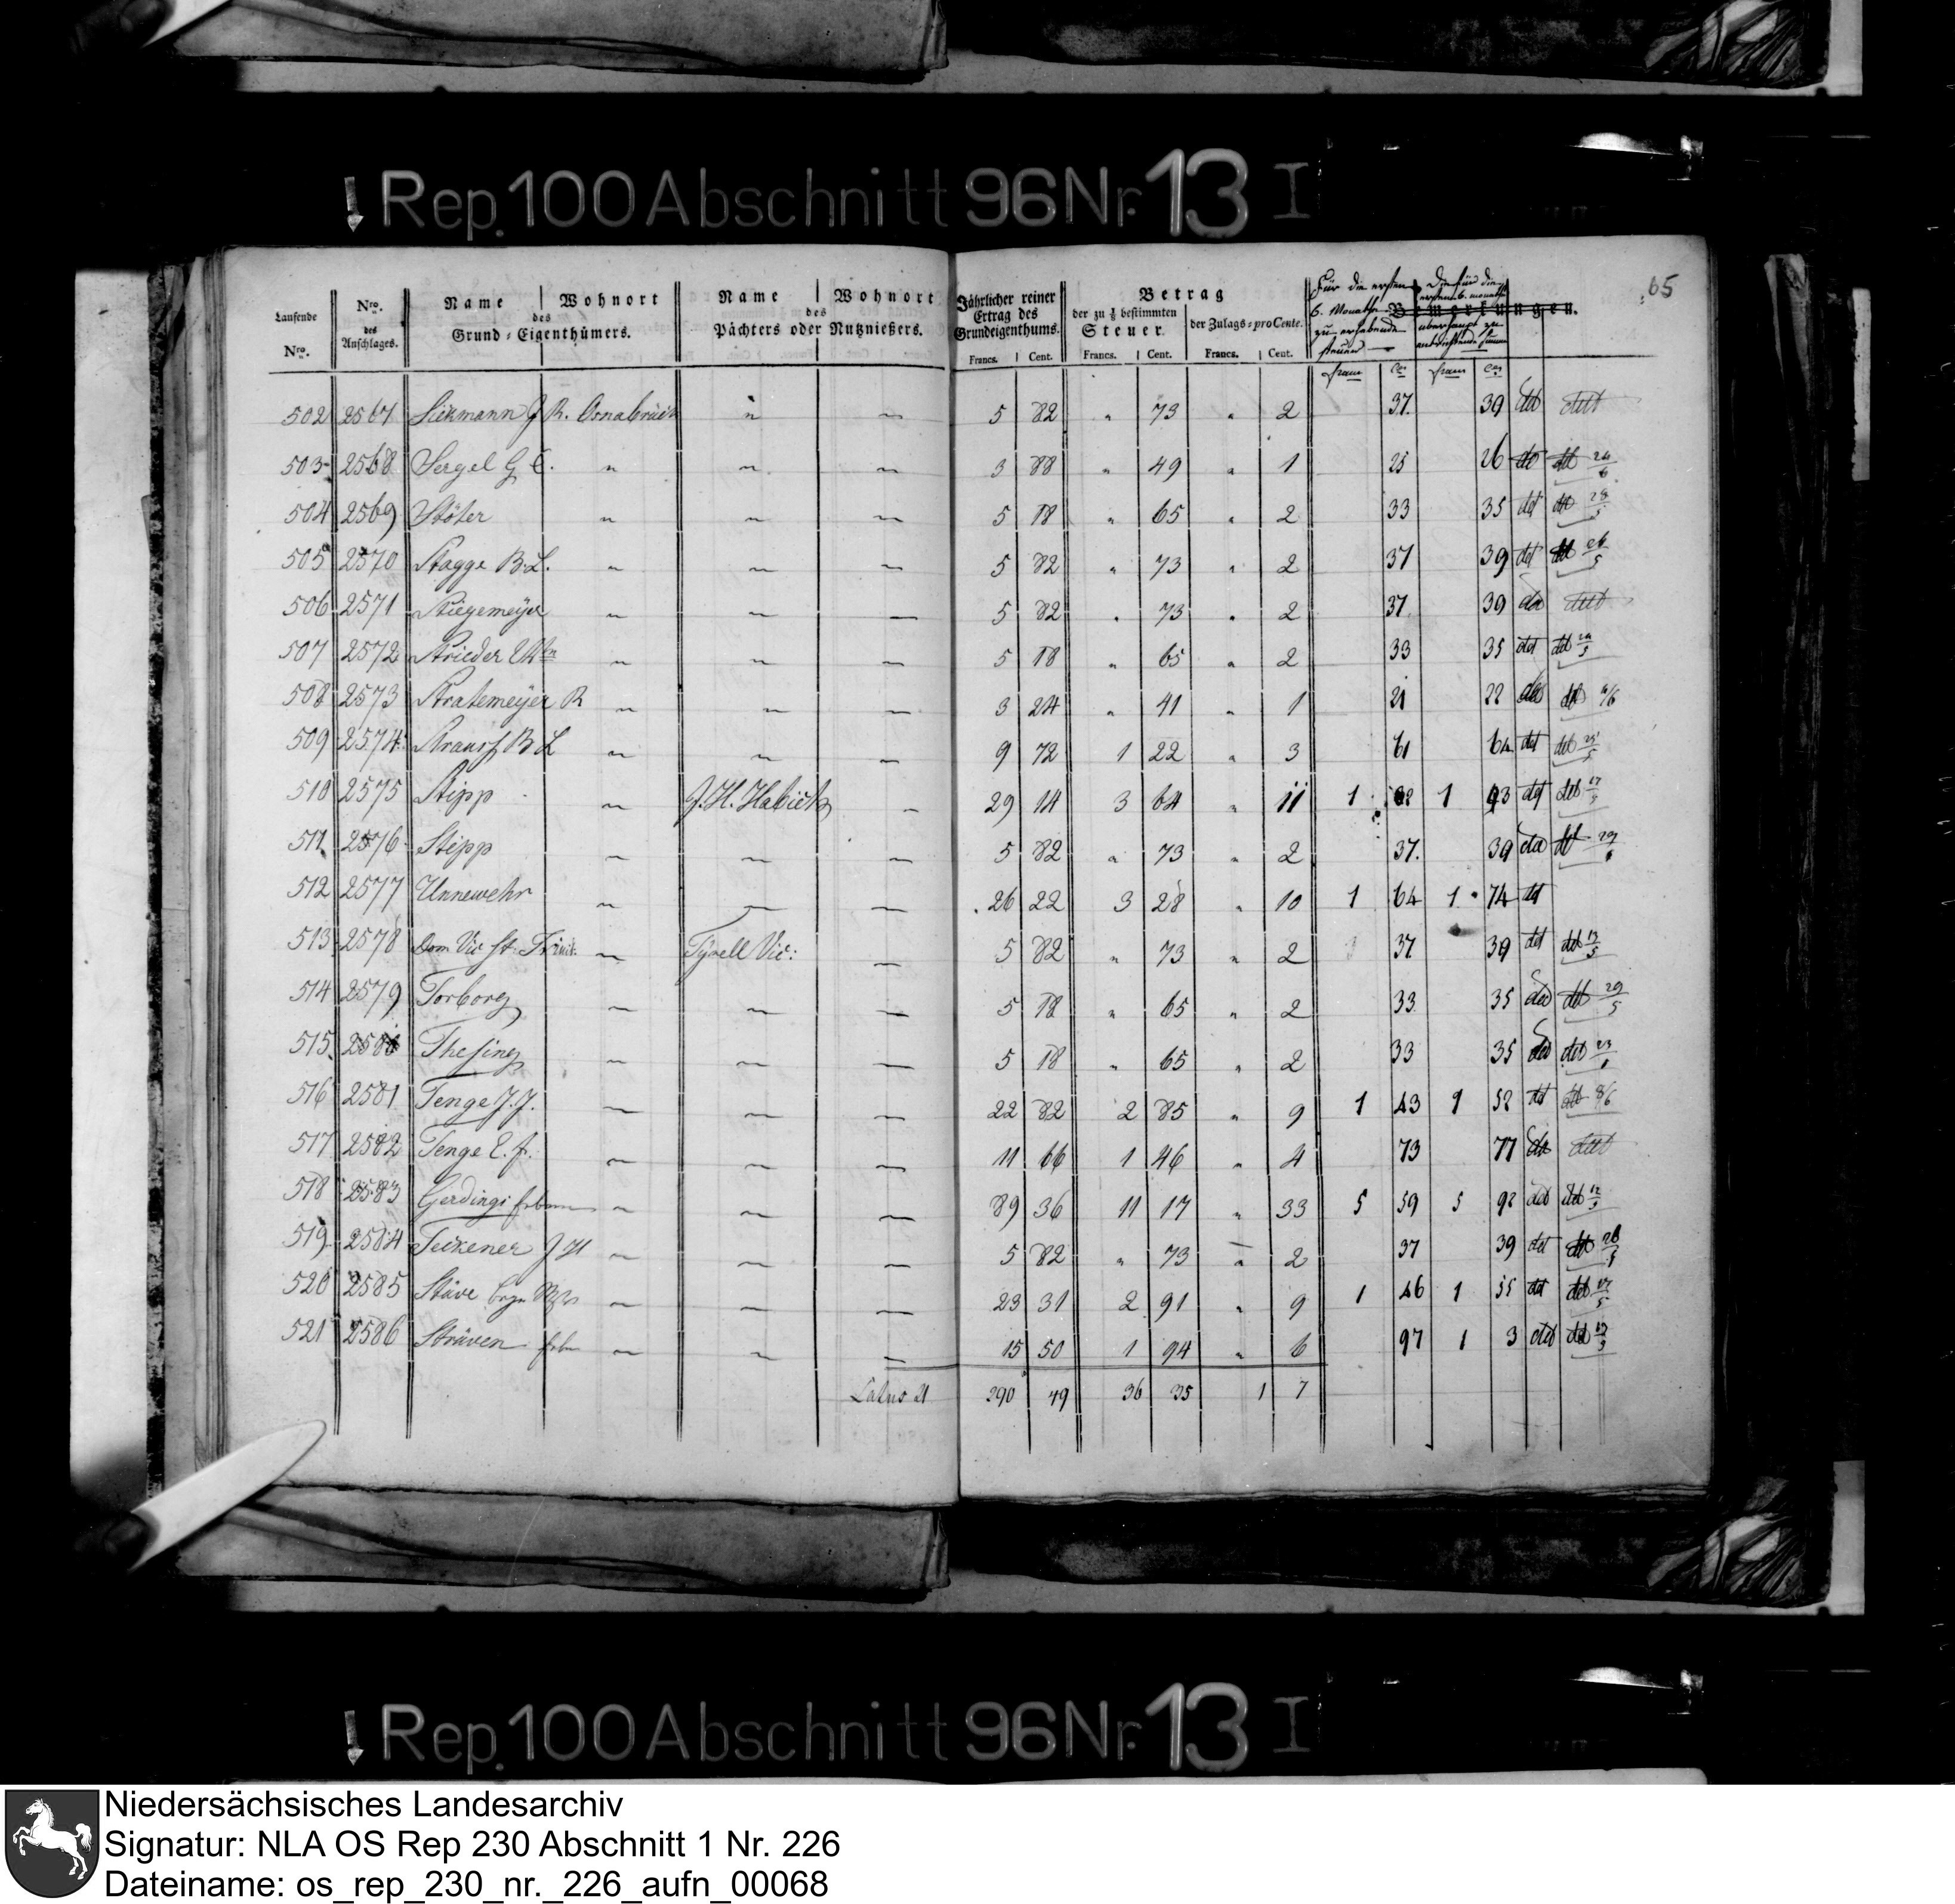 Rep. 100 Abschnitt 96 Nr. 13 I
65
Laufende Nro.
Nro. des Anschlages.
Name | Wohnort des Grund-Eigenthümers.
Name | Wohnort des Pächters oder Nutznießers.
Jährlicher reiner Ertrag des Grundeigenthums.
Betrag
der zu 1/8 bestimmten Steuer
der Zulags-proCente.
Bemerkungen.
Für die ersten 6. Monathe zu erhebende steuer
Die für die ersten 6. monathe überhaupt zu entrichtende Summe
Francs. Cent. Francs. Cent. Francs. Cent. franc Ces franc Ces
502 2567 Siekmann J R. Osnabrück " ~ 5 82 " 73 " 2 37. 39 ded dedt
503 2568 Sergel G C. " ~ ~ 3 88 " 49 " 1 25 26 dd ddt 24/6
504 2569 Stöter " ~ ~ 5 18 " 65 " 2 33 35 ddt ddt 28/5
505 2570 Stagge B. L. " ~ ~ 5 82 " 73 " 2 37 39 ddt ddt 26/5
506 2571 Stiegemeÿer ~ ~ ~ 5 82 " 73 " 2 37. 39 dedt
507 2572 Strieder ~ ~ ~ 5 18 " 65 " 2 33 35 ddt ddt
508 2573 Stratemeÿer R ~ ~ ~ 3 24 " 41 " 1 21 22 ddt
509 2574 Strauss B L ~ ~ ~ 9 72 1 22 " 3 61 64 ddt
510 2575 Stipp ~ J. H. Habicht ~ 29 14 3 64 " 11 1 82 1 93 ddt
511 2576 Stipp ~ ~ ~ 5 82 " 73 " 2 37. 39
512 2577 Unnewehr ~ ~ ~ 26 22 3 28 " 10 1 64 1 74 ddt
513 2578 Dom Vic St: Trinit: ~ Tÿrell Vic: ~ 5 82 " 73 " 2 37 39 ddt ddt 13/5
514 2579 Torborg ~ ~ ~ 5 18 " 65 " 2 33 35 ddt 29/5
515 2580 Thesing ~ ~ ~ 5 18 " 65 " 2 33 35
516 2581 Tenge J. J. ~ ~ ~ 22 82 2 85 " 9 1 43 1 52 ddt 8/6
517 2582 Tenge E. F. ~ ~ ~ 11 66 1 46 " 4 73 77 dedt
518 2583 Gerdings ~ ~ ~ 89 36 11 17 " 33 5 59 5 92 ddt
519 2584 Teckener J H ~ ~ ~ 5 82 " 73 " 2 37 39 ddt
520 2585 Stüve ~ ~ ~ 23 31 2 91 " 9 1 46 1 55 ddt
521 2586 Strüven ~ ~ ~ 15 50 1 94 " 6 97 1 3 ddt
Latus 21 290 49 36 35 1 7
Rep. 100 Abschnitt 96 Nr. 13 I
Niedersächsisches Landesarchiv
Signatur: NLA OS Rep 230 Abschnitt 1 Nr. 226
Dateiname: os_rep_230_nr._226_aufn_00068